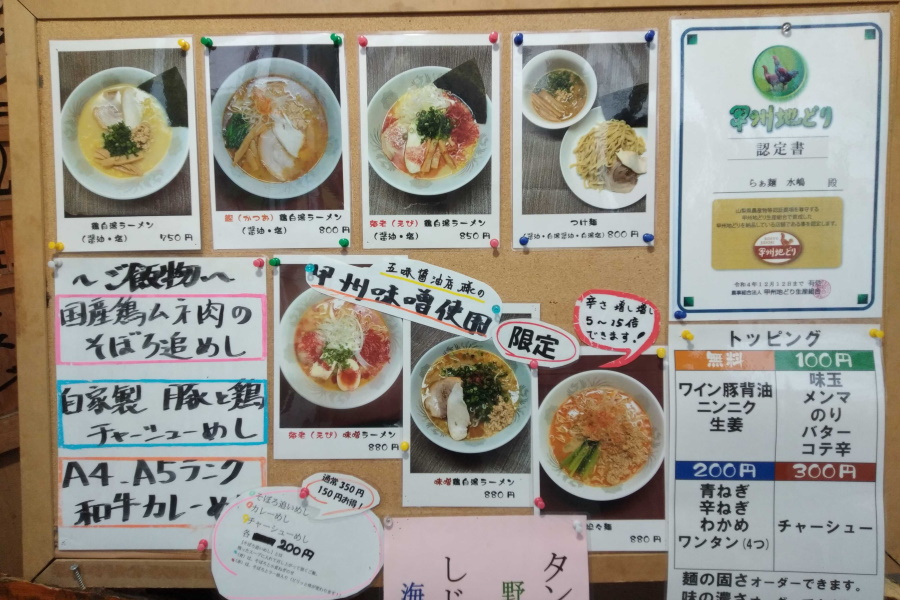 鶏白湯ラーメン
(醤油・塩) 750円
鰹(かつお)鶏白湯ラーメン
(醤油・塩) 800円
海老(えび)鶏白湯ラーメン
(醤油・塩) 850円
つけ麺
(醤油・白湯醤油・白湯塩) 800円
甲州地どり
認定書
らぁ麺 水嶋 殿
甲州地どり
令和4年12月12日まで有効
農事組合法人 甲州地どり生産組合
〜ご飯物〜
国産鶏ムネ肉の
そぼろ追めし
自家製 豚と鶏
チャーシューめし
A4、A5ランク
和牛カレーめ
五味醤油店 豚の
甲州味噌使用
限定
辛さ増し増し
5〜15倍
できます!
海老(えび)味噌ラーメン
880円
味噌鶏白湯ラーメン
880円
麺
880円
通常350円
150円お得!
そぼろ追いめし
カレーめし
チャーシューめし
各 200円
タン
野
しじ
海
トッピング
無料
ワイン豚背油
ニンニク
生姜
100円
味玉
メンマ
のり
バター
コテ辛
200円
青ねぎ
辛ねぎ
わかめ
ワンタン(4つ)
300円
チャーシュー
麺の固さオーダーできます。
味の濃さオーダー